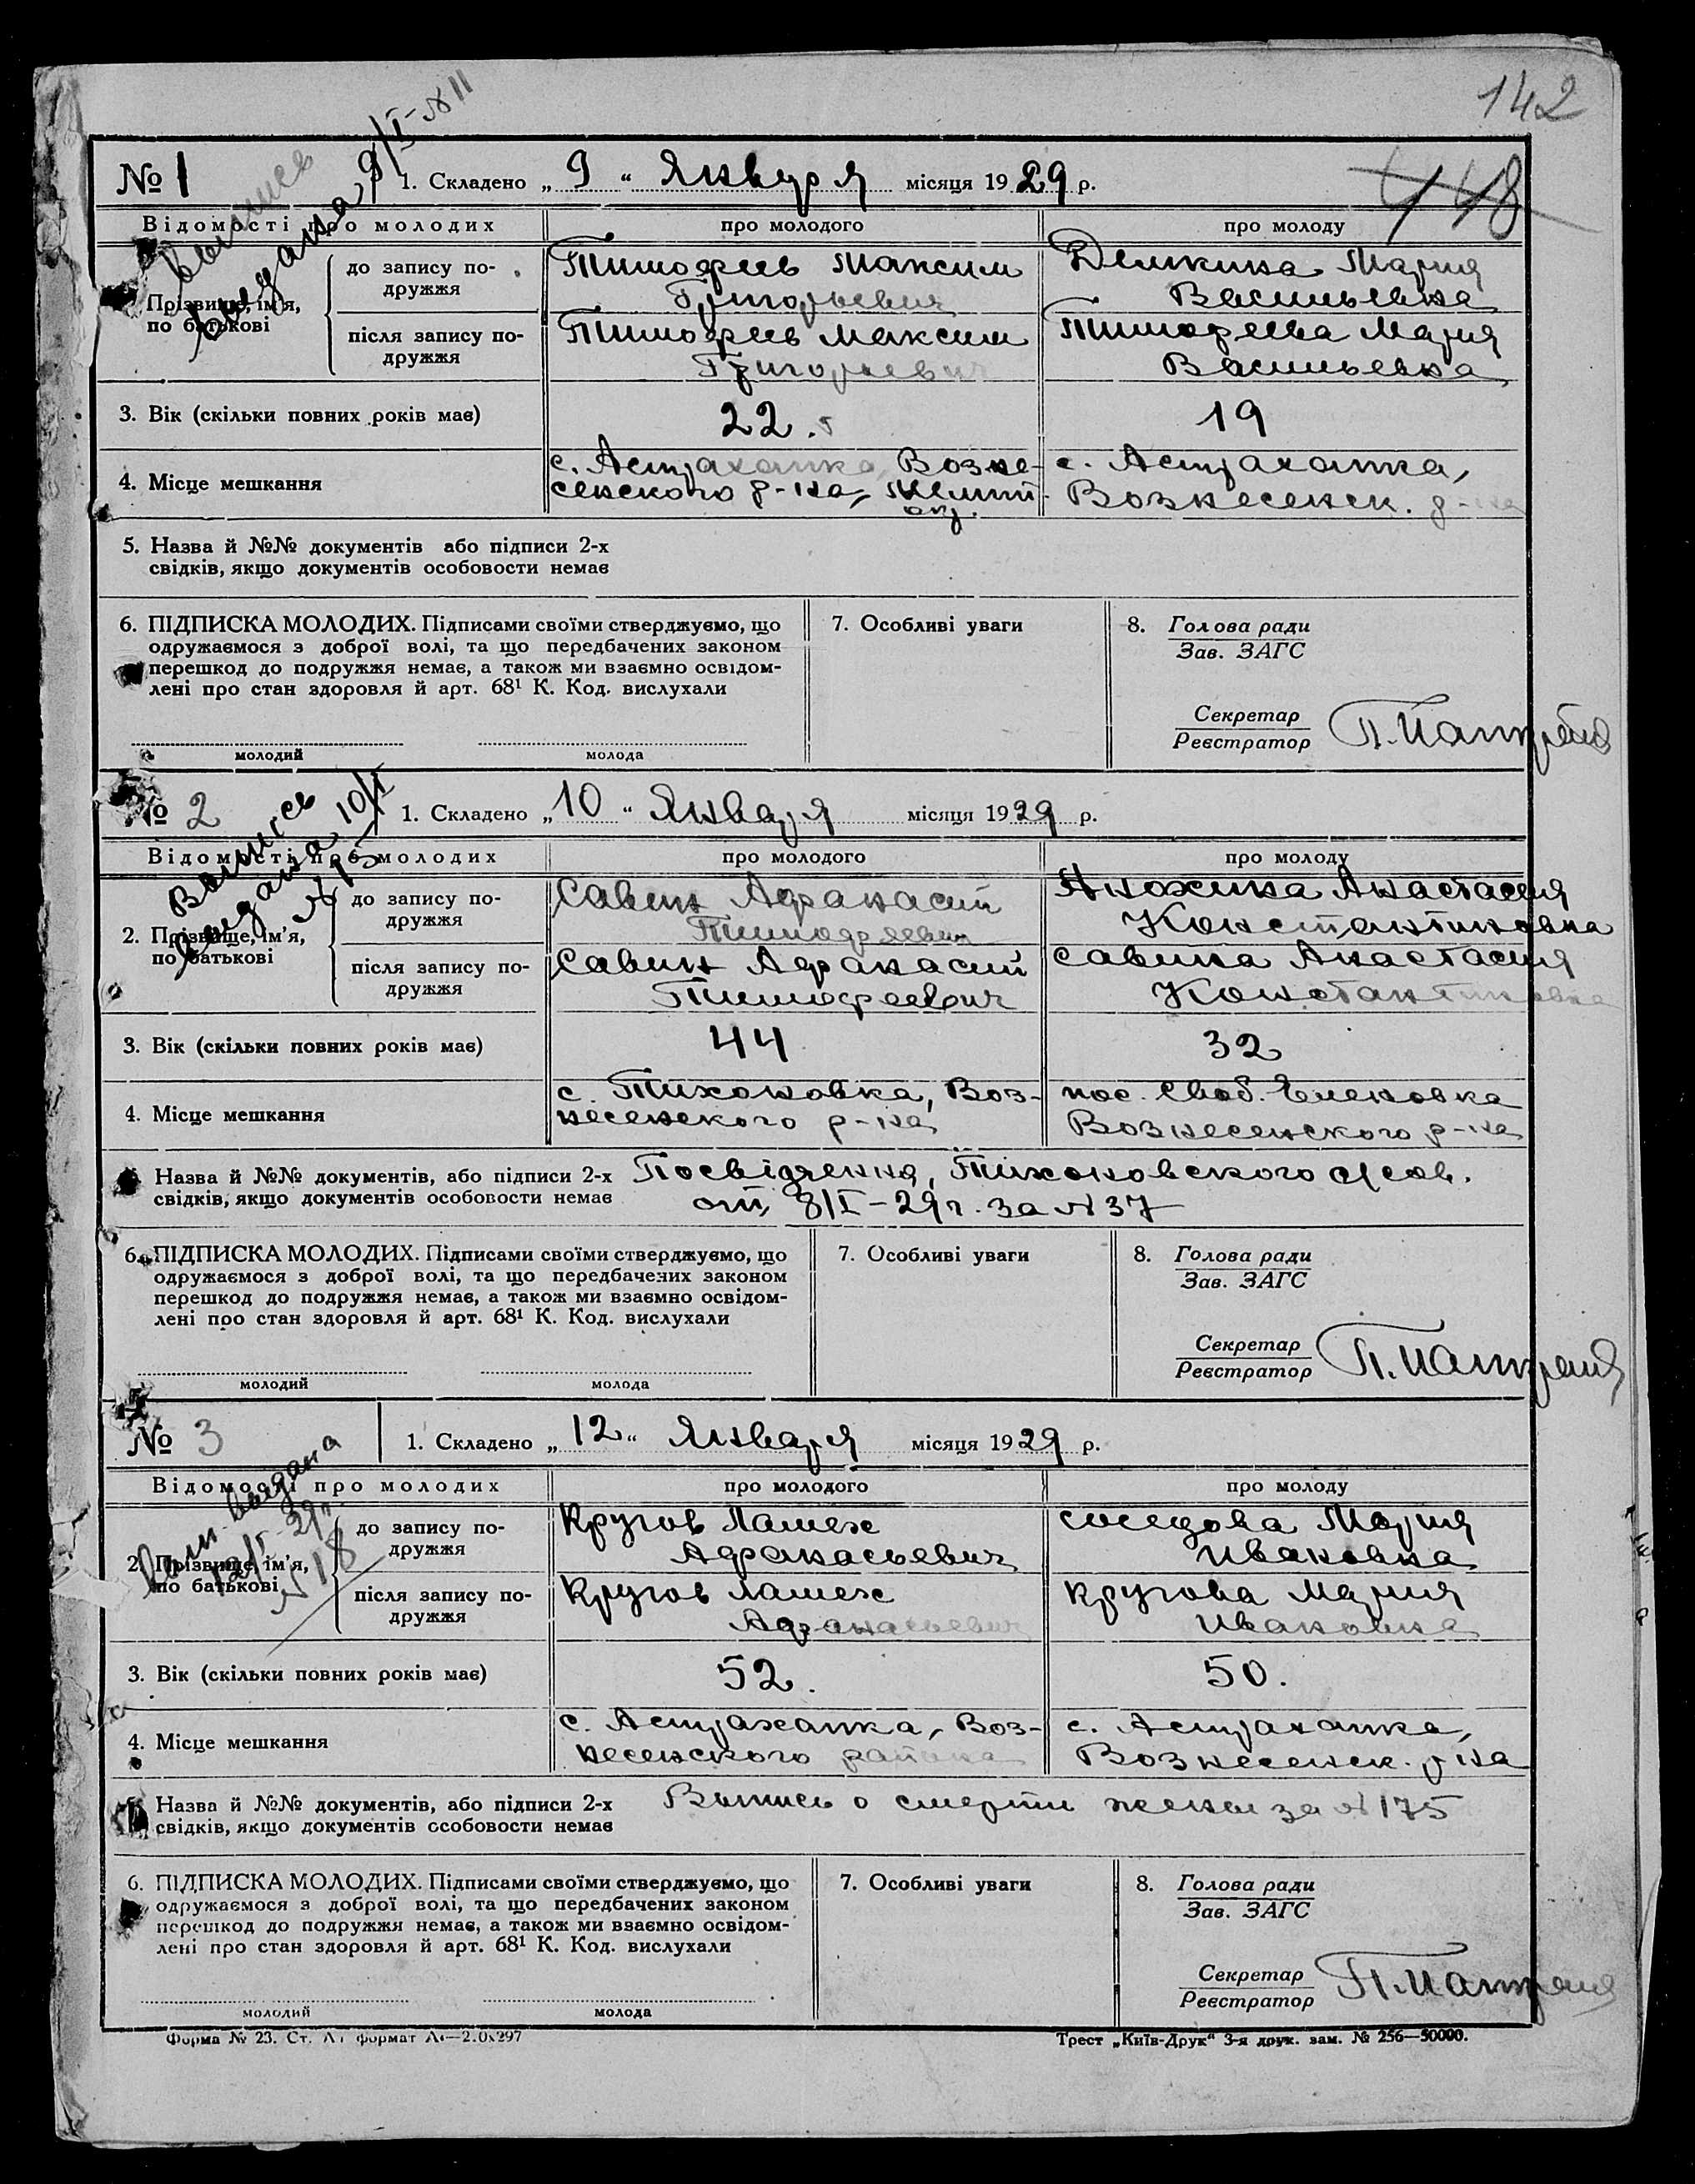 142
448
№ 1
Выпись
выдана 9/I-№11
1. Складено „ 9 “ Января місяця 1929 р.
Відомості про молодих
про молодого
про молоду
Прізвище, ім'я,
по батькові
до запису по-
дружжя
Тимофеев Максим
Григорьевич
Демкина Мария
Васильевна
після запису по-
дружжя
Тимофеев Максим
Григорьевич
Тимофеева Мария
Васильевна
3. Вік (скільки повних років має)
22.
19
4. Місце мешкання
с. Астраханка, Возне-
сенского р-на, Мелит.
окр.
с. Астраханка,
Вознесенск. р-на
5. Назва й №№ документів або підписи 2-х
свідків, якщо документів особовости немає
6. ПІДПИСКА МОЛОДИХ. Підписами своїми стверджуємо, що
одружаємося з доброї волі, та що передбачених законом
перешкод до подружжя немає, а також ми взаємно освідом-
лені про стан здоровля й арт. 68¹ К. Код. вислухали
молодий
молода
7. Особливі уваги
8. Голова ради
Зав. ЗАГС
Секретар
Реєстратор
№ 2
Выпись
выдана 10/I
1. Складено „ 10 “ Января місяця 1929 р.
Відомості про молодих
про молодого
про молоду
2. Прізвище, ім'я,
по батькові
до запису по-
дружжя
Савин Афанасий
Тимофеевич
Анохина Анастасия
Константиновна
після запису по-
дружжя
Савин Афанасий
Тимофеевич
Савина Анастасия
Константиновна
3. Вік (скільки повних років має)
44
32
4. Місце мешкання
с. Тихоновка, Воз-
несенского р-на
пос. Своб. Еленовка
Вознесенского р-на
Назва й №№ документів, або підписи 2-х
свідків, якщо документів особовости немає
Посвідчення, Тихоновского
от 8/I-29г. за №37
6. ПІДПИСКА МОЛОДИХ. Підписами своїми стверджуємо, що
одружаємося з доброї волі, та що передбачених законом
перешкод до подружжя немає, а також ми взаємно освідом-
лені про стан здоровля й арт. 68¹ К. Код. вислухали
молодий
молода
7. Особливі уваги
8. Голова ради
Зав. ЗАГС
Секретар
Реєстратор
№ 3
Вып. выдана
12/I-29г.
№18
1. Складено „ 12 “ Января місяця 1929 р.
Відомості про молодих
про молодого
про молоду
2. Прізвище, ім'я,
по батькові
до запису по-
дружжя
Кругов
Афанасьевич
Соседова Мария
Ивановна
після запису по-
дружжя
Кругов
Афанасьевич
Кругова Мария
Ивановна
3. Вік (скільки повних років має)
52.
50.
4. Місце мешкання
с. Астраханка, Воз-
несенского района
с. Астраханка,
Вознесенск. р-на
Назва й №№ документів, або підписи 2-х
свідків, якщо документів особовости немає
Выпись о смерти жены за №175
6. ПІДПИСКА МОЛОДИХ. Підписами своїми стверджуємо, що
одружаємося з доброї волі, та що передбачених законом
перешкод до подружжя немає, а також ми взаємно освідом-
лені про стан здоровля й арт. 68¹ К. Код. вислухали
молодий
молода
7. Особливі уваги
8. Голова ради
Зав. ЗАГС
Секретар
Реєстратор
Форма № 23. Ст. формат 2.0х297
Трест „Київ-Друк“ 3-я друк. зам. № 256—50000.